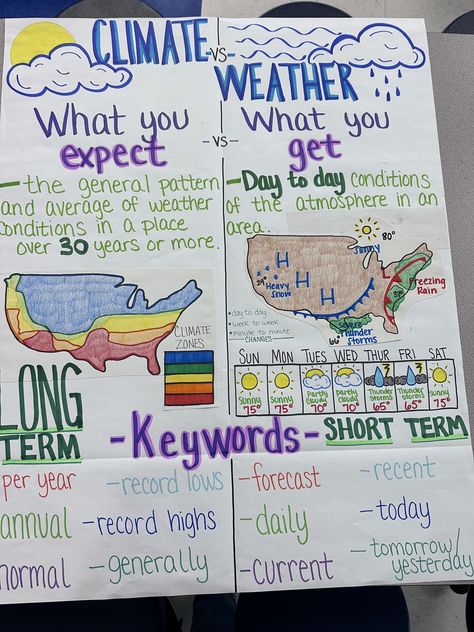 CLIMATE -VS- WEATHER
What you expect
- VS -
What you get
- the general pattern
and average of weather
conditions in a place
over 30 years or more.
- Day to day conditions
of the atmosphere in an
area.
CLIMATE
ZONES
Sunny
80°
Heavy
Snow
H
H
H
L
Freezing
Rain
Severe
Thunder
storms
• day to day
• week to week
• minute to minute
CHANGES
SUN MON TUES WED THUR FRI SAT
Sunny Sunny Partly Cloudy Partly Cloudy Thunder storms Thunder storms Sunny
75° 75° 70° 70° 65° 65° 75°
LONG
TERM
- Keywords -
SHORT TERM
per year
annual
normal
- record lows
- record highs
- generally
- forecast
- daily
- current
- recent
- today
- tomorrow/
yesterday